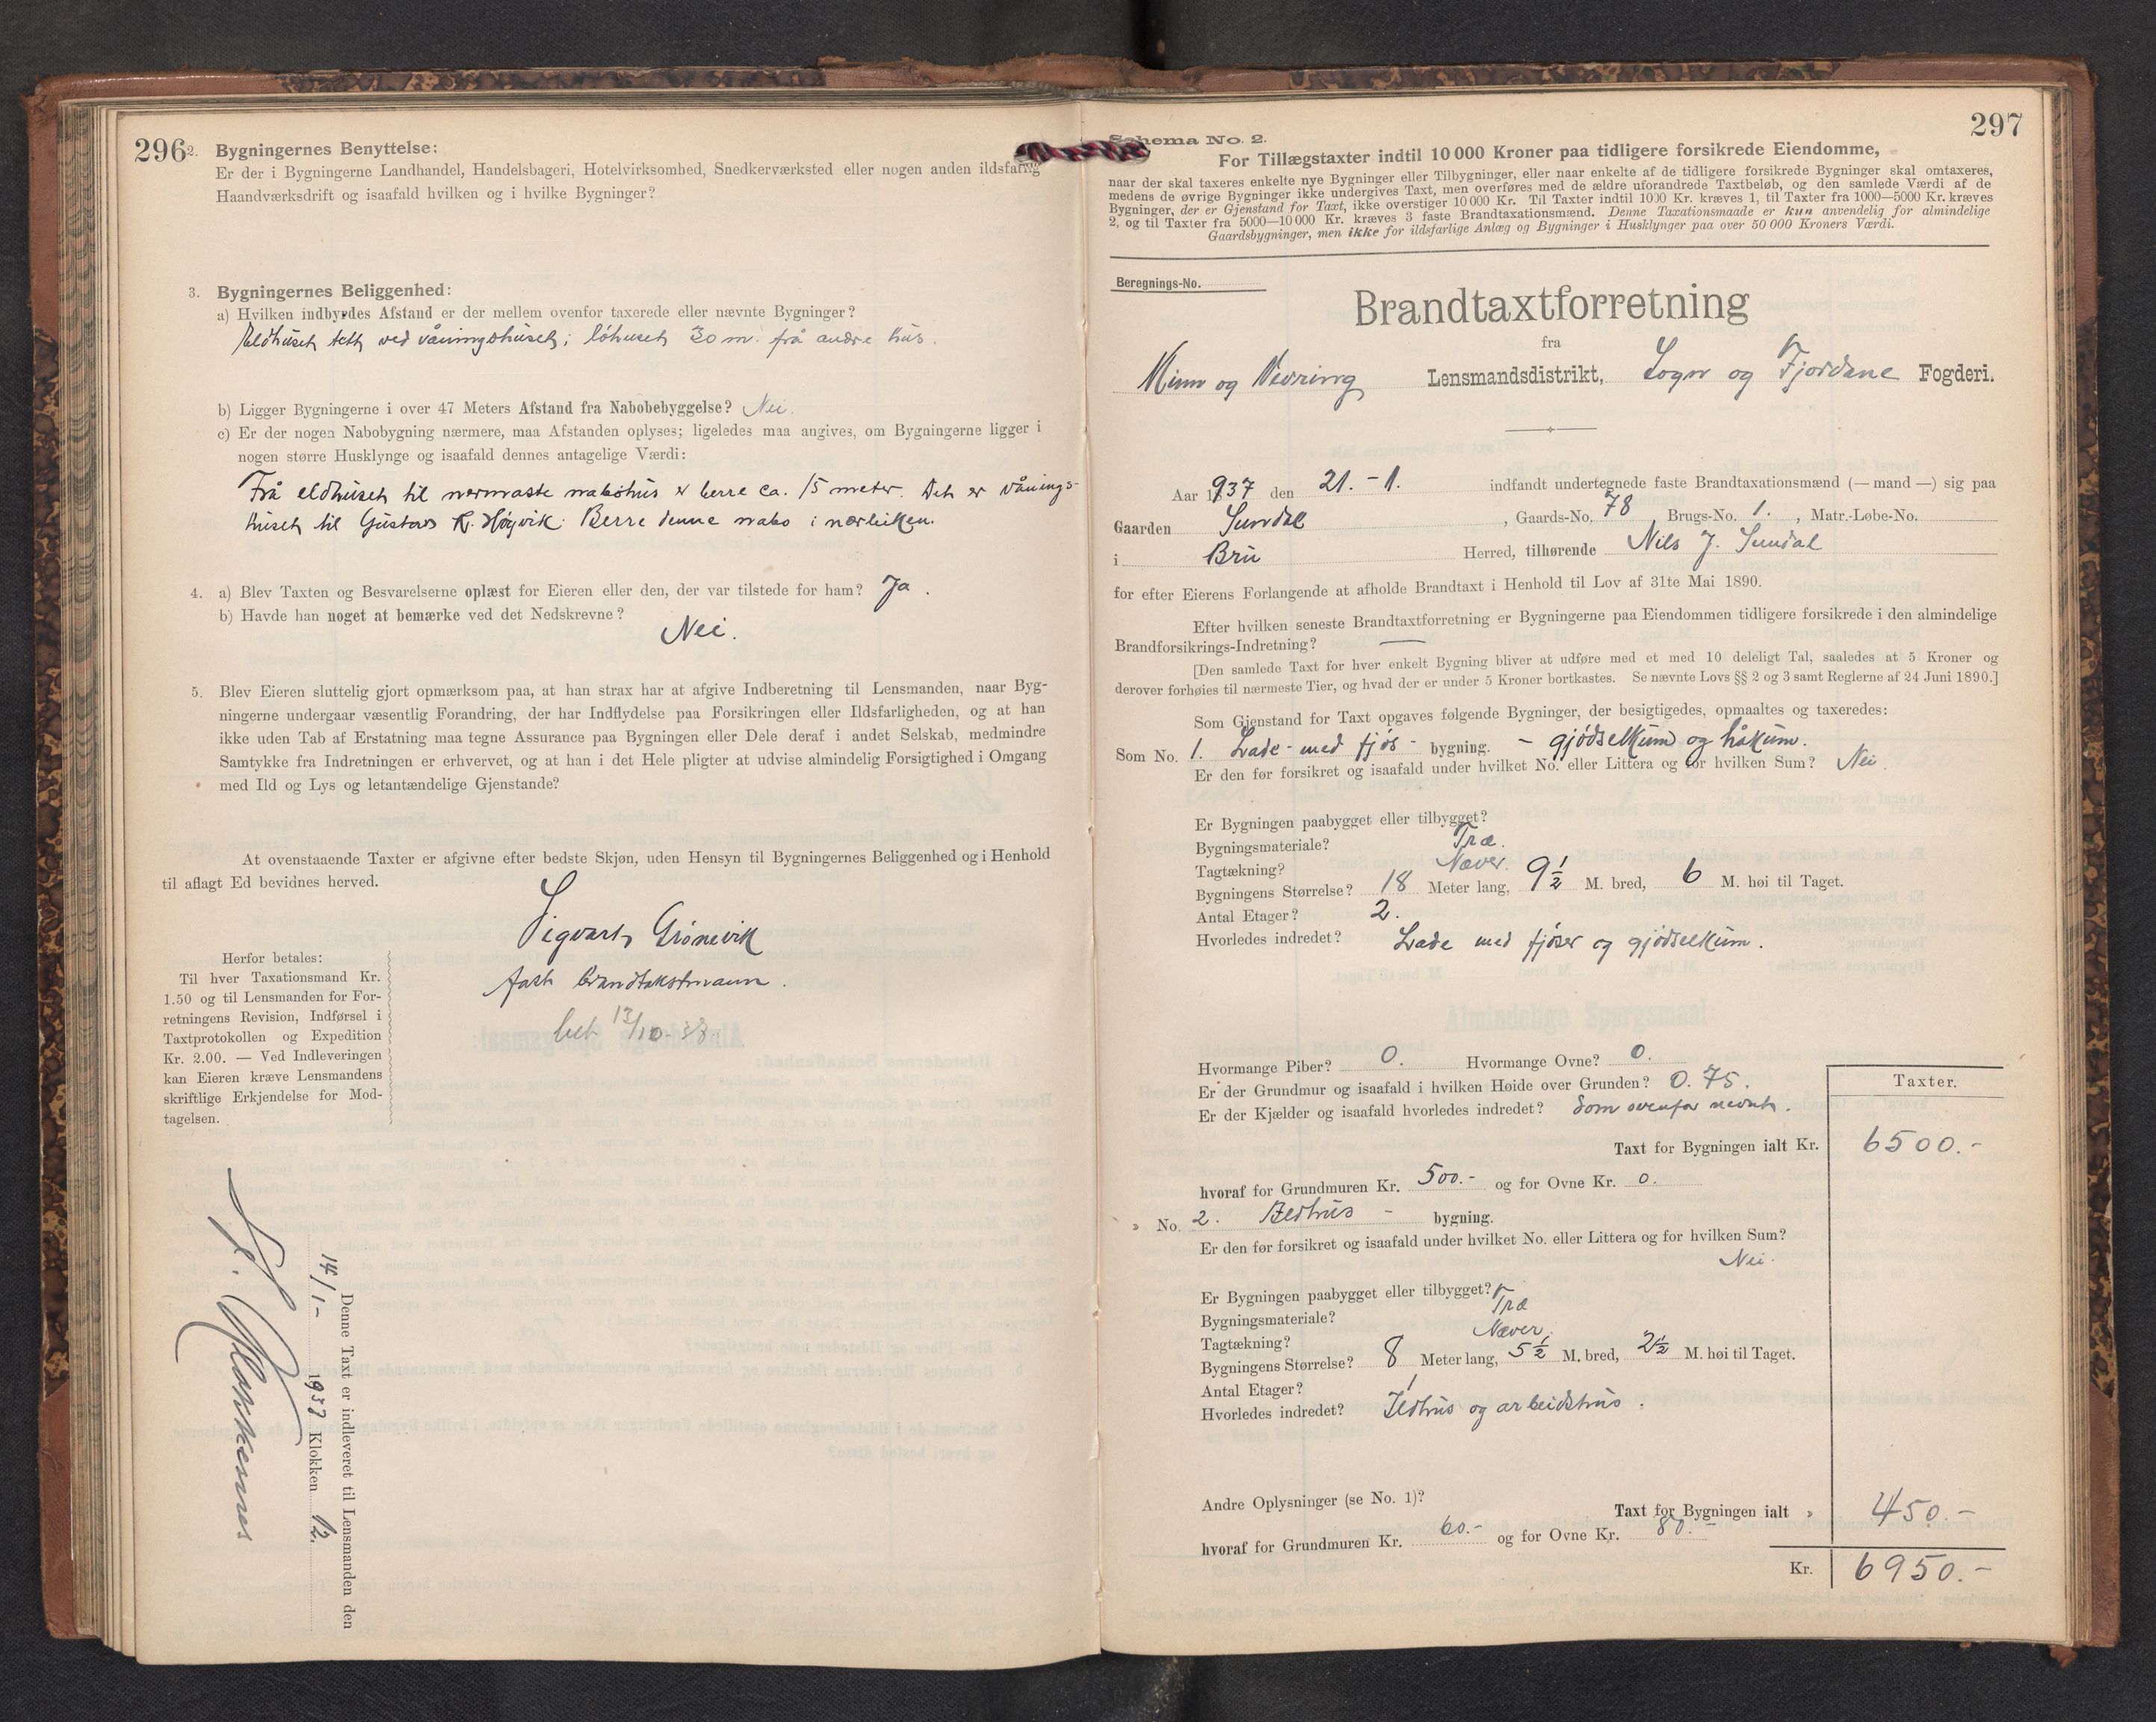 296
2. Bygningernes Benyttelse:
Er der i Bygningerne Landhandel, Handelsbageri, Hotelvirksomhed, Snedkerværksted eller nogen anden ildsfarlig
Haandværksdrift og isaafald hvilken og i hvilke Bygninger?
3. Bygningernes Beliggenhed:
a) Hvilken indbyrdes Afstand er der mellem ovenfor taxerede eller nævnte Bygninger?
Eldhuset tett ved våningshuset; löhuset 30 m. frå andre hus.
b) Ligger Bygningerne i over 47 Meters Afstand fra Nabobebyggelse? Nei.
c) Er der nogen Nabobygning nærmere, maa Afstanden oplyses; ligeledes maa angives, om Bygningerne ligger i
nogen større Husklynge og isaafald dennes antagelige Værdi:
Frå eldhuset til nærmaste nabohus er berre ca. 15 meter. Det er vånings-
huset til Gustav R. Høyvik. Berre denne nabo i nærleiken.
4. a) Blev Taxten og Besvarelserne oplæst for Eieren eller den, der var tilstede for ham? Ja.
b) Havde han noget at bemærke ved det Nedskrevne?
Nei.
5. Blev Eieren sluttelig gjort opmærksom paa, at han strax har at afgive Indberetning til Lensmanden, naar Byg-
ningerne undergaar væsentlig Forandring, der har Indflydelse paa Forsikringen eller Ildsfarligheden, og at han
ikke uden Tab af Erstatning maa tegne Assurance paa Bygningen eller Dele deraf i andet Selskab, medmindre
Samtykke fra Indretningen er erhvervet, og at han i det Hele pligter at udvise almindelig Forsigtighed i Omgang
med Ild og Lys og letantændelige Gjenstande?
At ovenstaaende Taxter er afgivne efter bedste Skjøn, uden Hensyn til Bygningernes Beliggenhed og i Henhold
til aflagt Ed bevidnes herved.
Sigvart Grönevik
fast brandtakstmann.
bet. 13/10-38.
Herfor betales:
Til hver Taxationsmand Kr.
1.50 og til Lensmanden for For-
retningens Revision, Indførsel i
Taxtprotokollen og Expedition
Kr. 2.00. — Ved Indleveringen
kan Eieren kræve Lensmandens
skriftlige Erkjendelse for Mod-
tagelsen.
Denne Taxt er indleveret til Lensmanden den
14/1- 1937 Klokken 12.
297
Schema No. 2.
For Tillægstaxter indtil 10 000 Kroner paa tidligere forsikrede Eiendomme,
naar der skal taxeres enkelte nye Bygninger eller Tilbygninger, eller naar enkelte af de tidligere forsikrede Bygninger skal omtaxeres,
medens de øvrige Bygninger ikke undergives Taxt, men overføres med de ældre uforandrede Taxtbeløb, og den samlede Værdi af de
Bygninger, der er Gjenstand for Taxt, ikke overstiger 10 000 Kr. Til Taxter indtil 1000 Kr. kræves 1, til Taxter fra 1000—5000 Kr. kræves
2, og til Taxter fra 5000—10 000 Kr. kræves 3 faste Brandtaxationsmænd. Denne Taxationsmaade er kun anvendelig for almindelige
Gaardsbygninger, men ikke for ildsfarlige Anlæg og Bygninger i Husklynger paa over 50 000 Kroners Værdi.
Beregnings-No.
Brandtaxtforretning
fra
Kinn og Nevring Lensmandsdistrikt, Sogn og Fjordane Fogderi.
Aar 1937 den 21.-1. indfandt undertegnede faste Brandtaxationsmænd (— mand —) sig paa
Gaarden Sundal, Gaards-No. 78 Brugs-No. 1., Matr.-Løbe-No.
i Bru Herred, tilhørende Nils J. Sundal
for efter Eierens Forlangende at afholde Brandtaxt i Henhold til Lov af 31te Mai 1890.
Efter hvilken seneste Brandtaxtforretning er Bygningerne paa Eiendommen tidligere forsikrede i den almindelige
Brandforsikrings-Indretning? —
[Den samlede Taxt for hver enkelt Bygning bliver at udføre med et med 10 deleligt Tal, saaledes at 5 Kroner og
derover forhøies til nærmeste Tier, og hvad der er under 5 Kroner bortkastes. Se nævnte Lovs §§ 2 og 3 samt Reglerne af 24 Juni 1890.]
Som Gjenstand for Taxt opgaves følgende Bygninger, der besigtigedes, opmaaltes og taxeredes:
Som No. 1. Lade- med fjös- bygning. - gjödselkum og håkum.
Er den før forsikret og isaafald under hvilket No. eller Littera og for hvilken Sum? Nei.
Er Bygningen paabygget eller tilbygget?
Bygningsmateriale? Træ.
Tagtækning? Næver.
Bygningens Størrelse? 18 Meter lang, 9 1/2 M. bred, 6 M. høi til Taget.
Antal Etager? 2.
Hvorledes indredet? Lade med fjöser og gjödselkum.
Hvormange Piber? 0. Hvormange Ovne? 0.
Er der Grundmur og isaafald i hvilken Høide over Grunden? 0.75.
Er der Kjælder og isaafald hvorledes indredet? Som ovenfor nevnt.
Taxter.
Taxt for Bygningen ialt Kr. 6500.-
hvoraf for Grundmuren Kr. 500.- og for Ovne Kr. 0.
» No. 2. Eldhus - bygning.
Er den før forsikret og isaafald under hvilket No. eller Littera og for hvilken Sum?
Nei.
Er Bygningen paabygget eller tilbygget?
Bygningsmateriale? Træ
Tagtækning? Næver.
Bygningens Størrelse? 8 Meter lang, 5 1/2 M. bred, 2 1/2 M. høi til Taget.
Antal Etager? 1
Hvorledes indredet? Ildhus og arbeidshus.
Andre Oplysninger (se No. 1)?
Taxt for Bygningen ialt » 450.-
hvoraf for Grundmuren Kr. 60.- og for Ovne Kr. 80.-
Kr. 6950.-